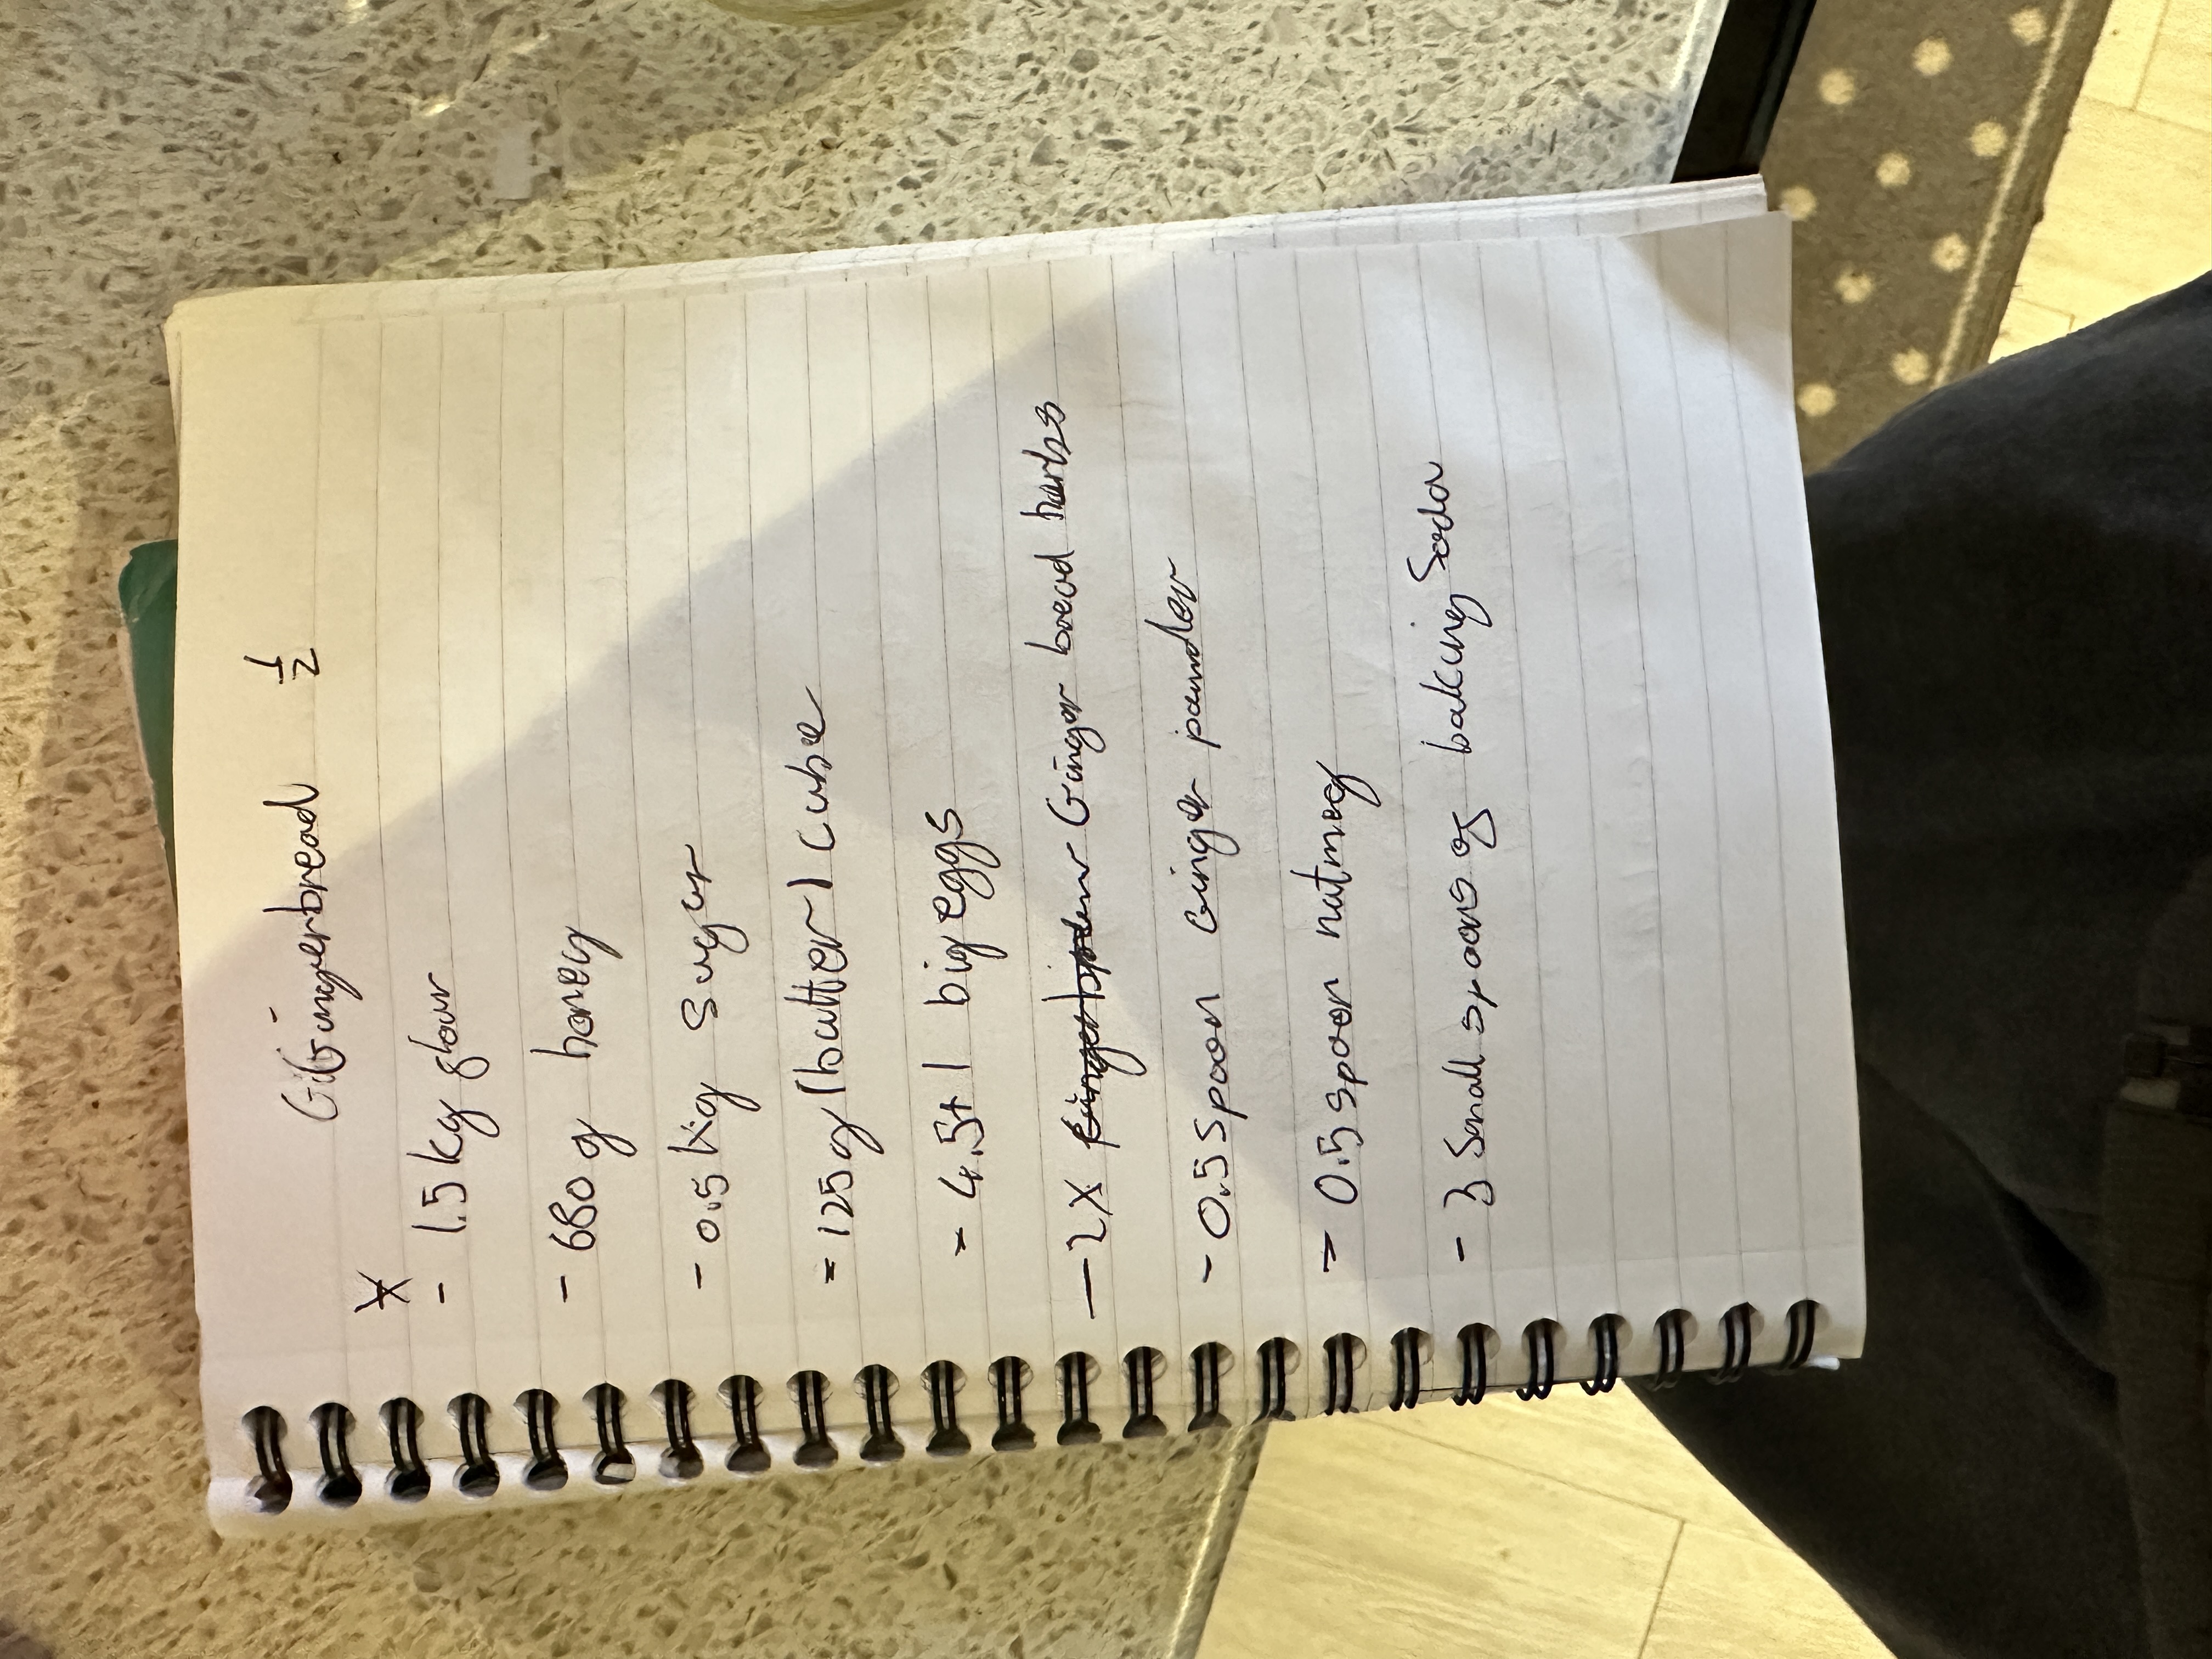 Gingerbread 1/2
- 1.5 kg flour
- 680 g honey
- 0.5 kg sugar
= 125g / butter 1 cube
= 4.5+1 big eggs
- 2X Ginger bread harbs
- 0.5 spoon Ginger pawder
= 0.5 spoon nutmeg
- 3 Small spoons of baking Soda